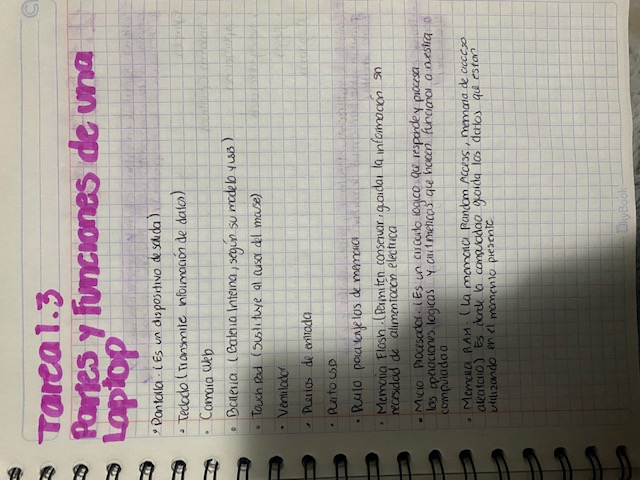 Tarea 1.3
Partes y Funciones de una
Laptop
• Pantalla. (Es un dispositivo de salida)
• Teclado (Transmite información de datos)
• Camara Web
• Bateria (Bateria Interna, según su modelo y USB)
• Touch Pad (Sustituye al cursor del mouse)
• Ventilador
• Puertos de entrada
• Puerto USB
• Puerto para tarjetas de memoria
• Memoria Flash. (Permiten conservar, guardar la información sin
necesidad de alimentación electrica
• Micro Procesador. (Es un circuito logico que responde y procesa
las operaciones logicas y aritmeticas que hacen funcionar a nuestra
computadora
• Memoria RAM. (La memoria Random Access, memoria de acceso
aleatorio) Es donde la computadora guarda los datos que estan
utilizando en el momento presente
SkyBook